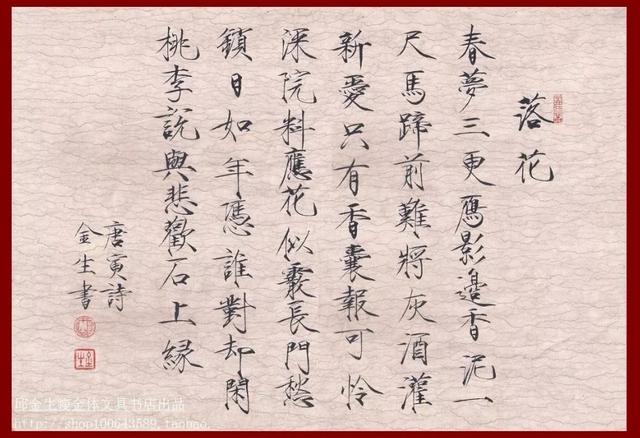 落花
春夢三更鴈影邊香泥一
尺馬蹄前難將灰酒灌
新愛只有香囊報可怜
深院料應花似霰長門愁
鎖日如年憑誰對却閑
桃李說與悲歡石上緣
唐寅詩
金生書
邱金生瘦金体文具书店出品